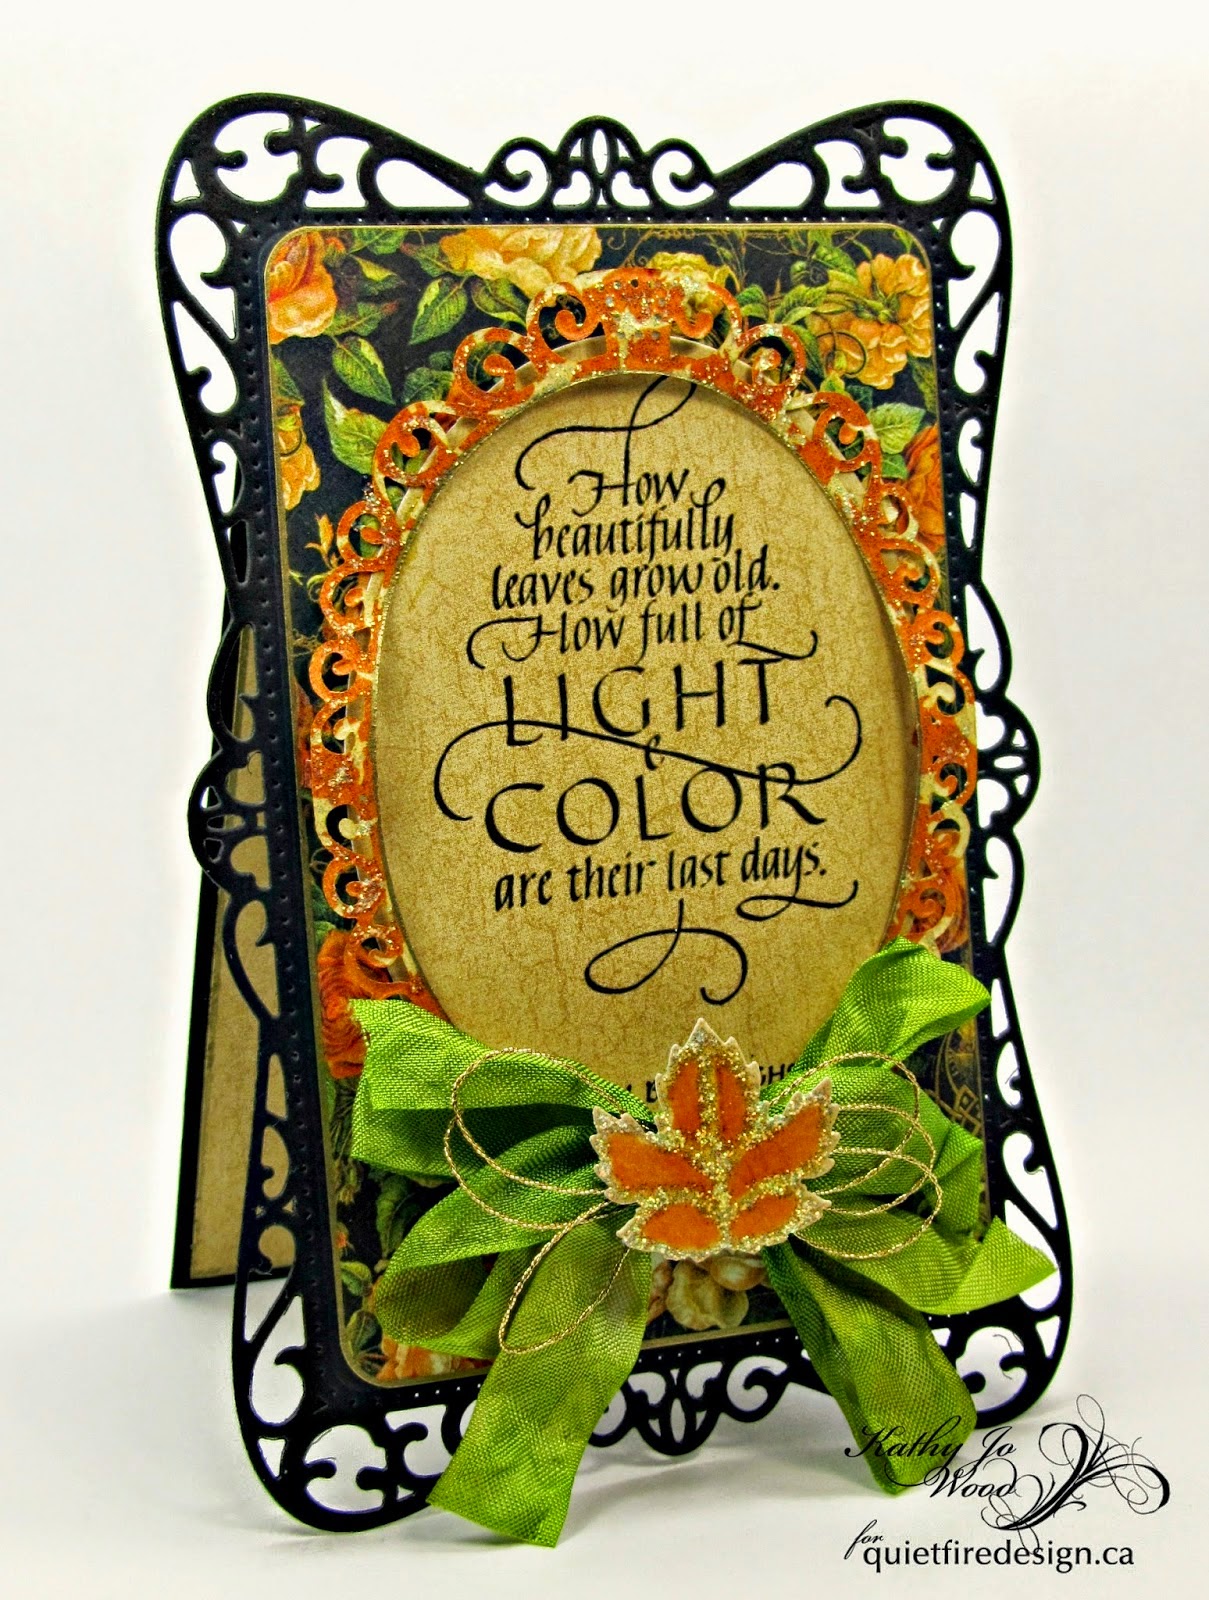 How
beautifully
leaves grow old.
How full of
LIGHT
&
COLOR
are their last days.
Kathy Jo
Wood
for
quietfiredesign.ca